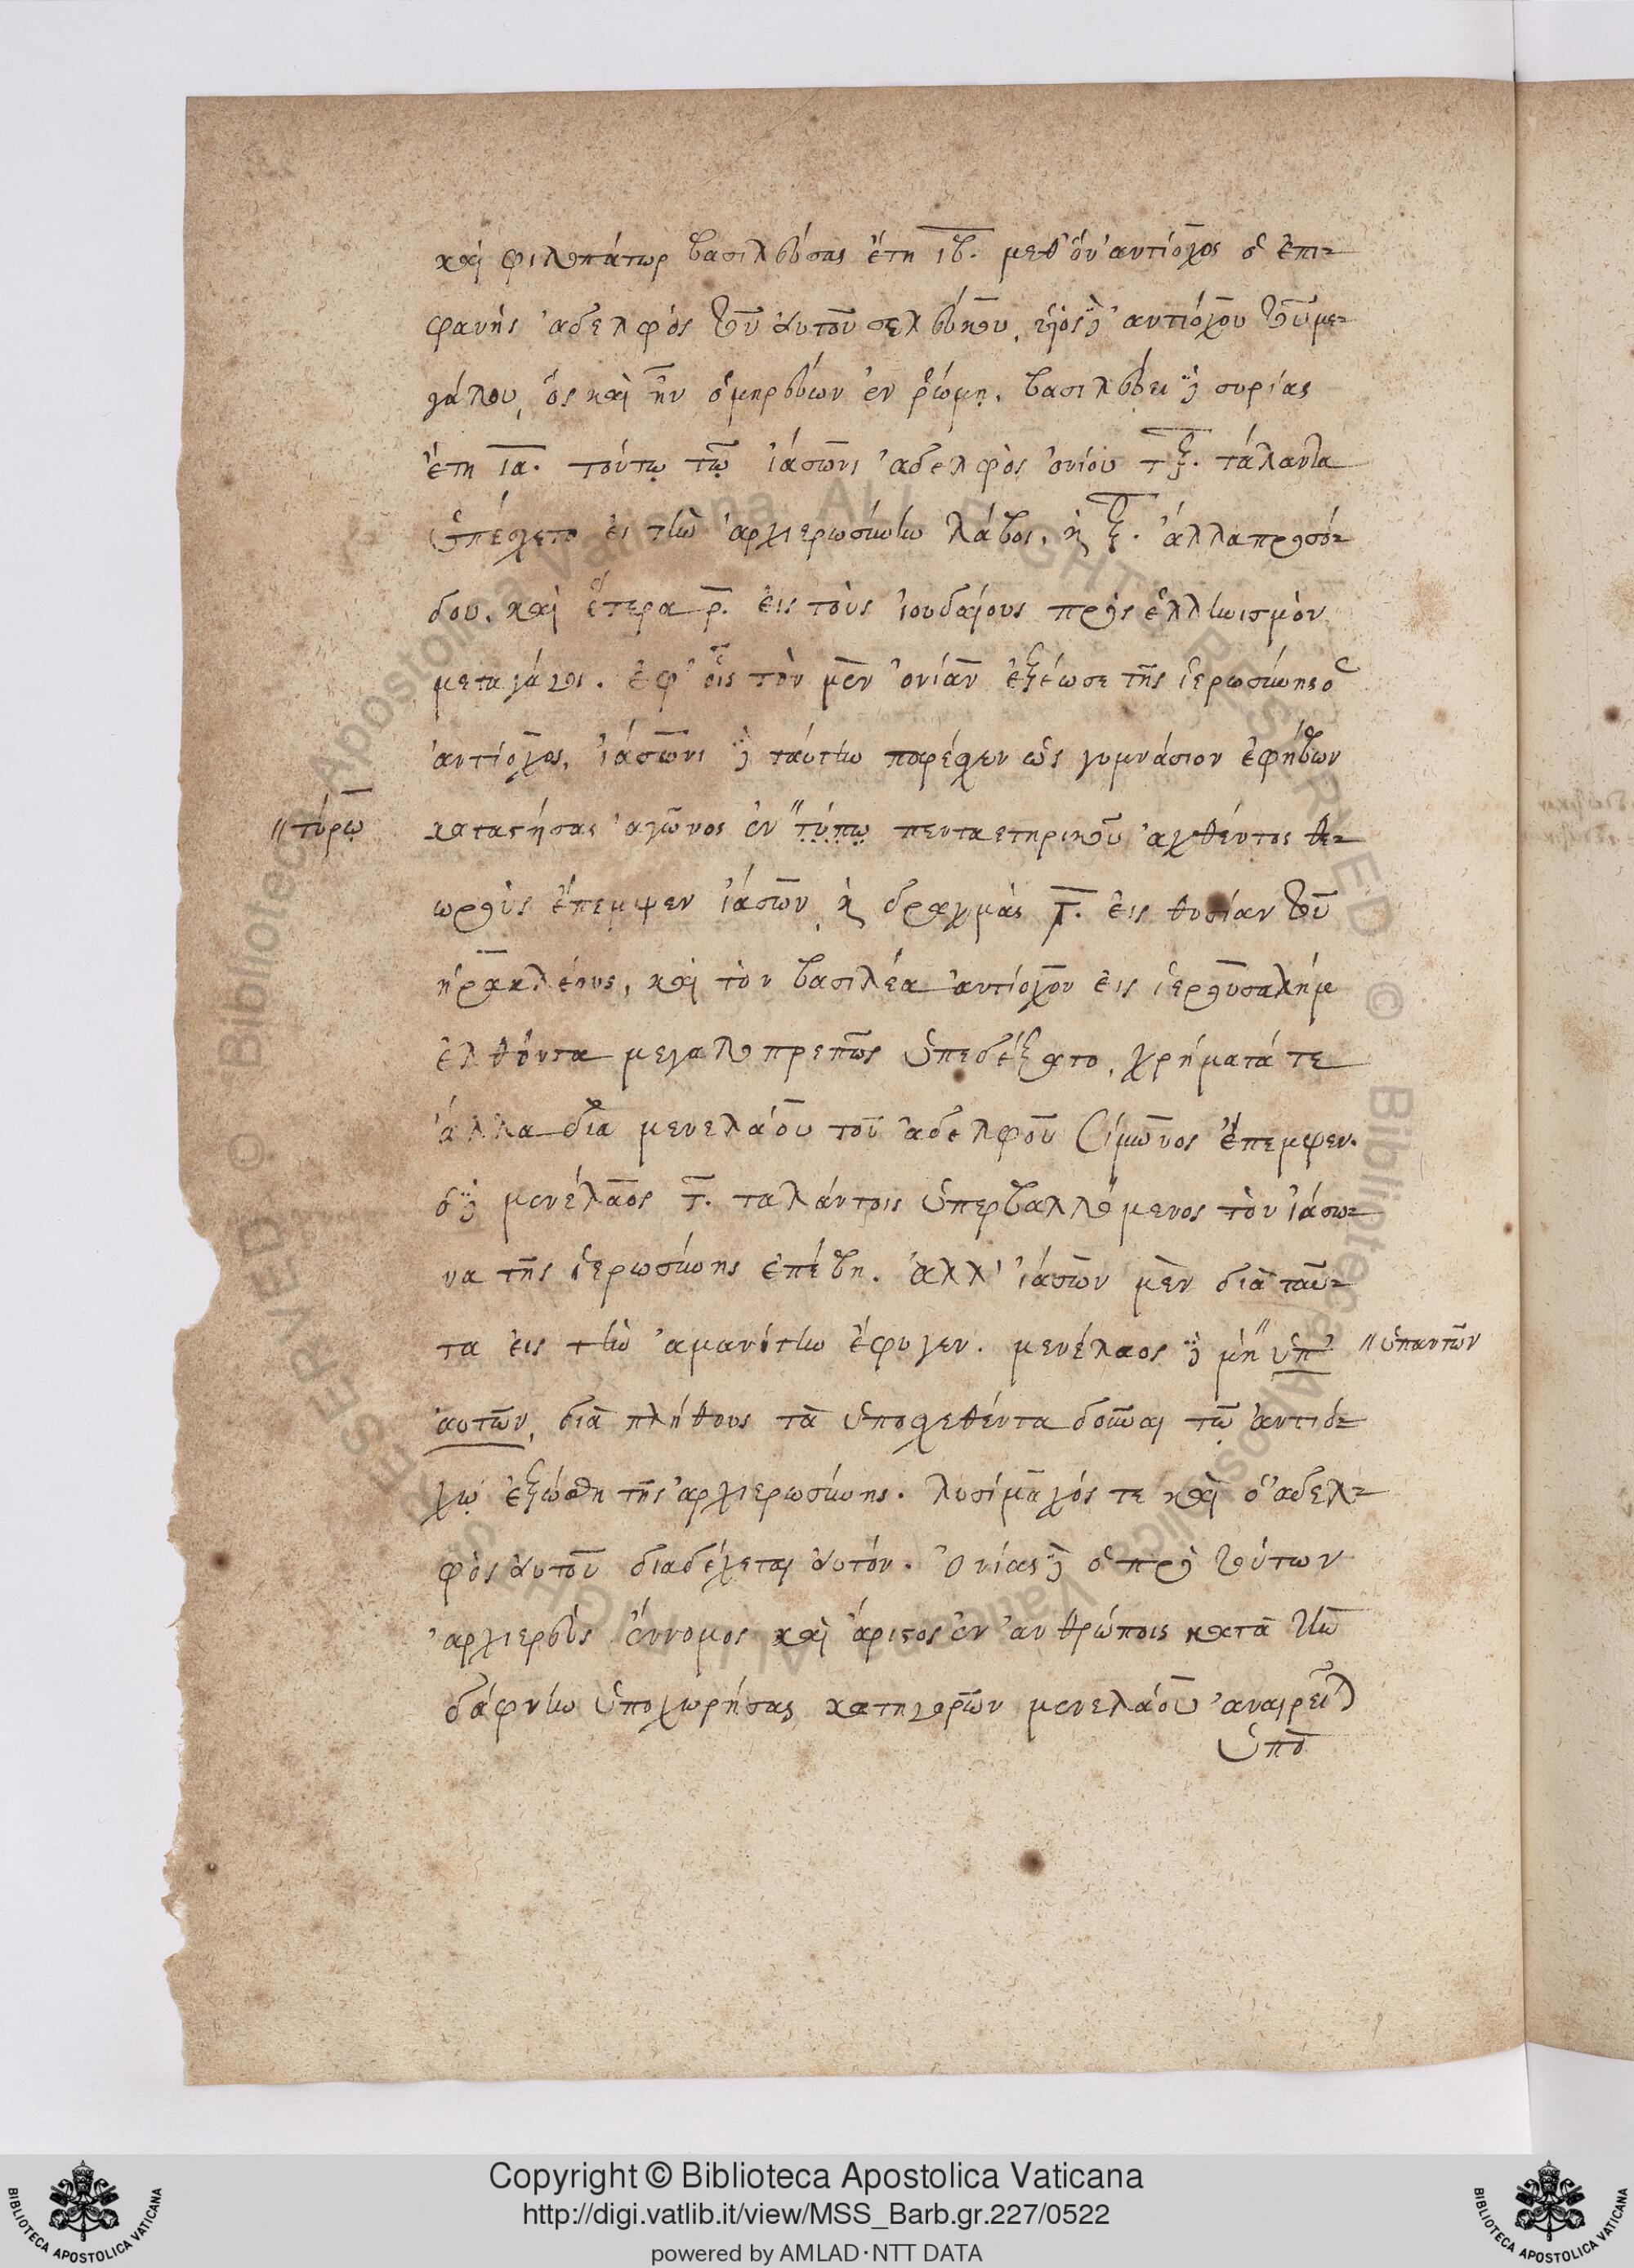 καὶ φιλοπάτωρ βασιλεύσας ἔτη ιβ. μεθ' ὃν ἀντίοχος ὁ ἐπι-
φανὴς ἀδελφὸς τοῦ αὐτοῦ σελεύκου, υἱὸς δὲ ἀντιόχου τοῦ με-
γάλου, ὃς καὶ ἦν ὁμηρεύων ἐν ῥώμῃ. βασιλεύει δὲ συρίας
ἔτη ια. τούτῳ τῷ ἰάσωνι ἀδελφὸς ὀνίου τξ. τάλαντα
ὑπέσχετο εἰ τὴν ἀρχιερωσύνην λάβοι. καὶ ξ. ἄλλα προσό-
δου. καὶ ἕτερα ρ. εἰς τοὺς ἰουδαίους πρὸς ἑλληνισμὸν
μεταγάγοι. ἐφ' οἷς τὸν μὲν ὀνίαν ἐξέωσε τῆς ἱερωσύνης ὁ
ἀντίοχος, ἰάσωνι δὲ ταύτην παρέσχεν ὡς γυμνάσιον ἐφήβων
"τύρῳ καταστήσας ἀγῶνος ἐν "τύπῳ πενταετηρικοῦ ἀχθέντος θε-
ωροὺς ἔπεμψεν ἰάσων, καὶ δραχμὰς τ. εἰς θυσίαν τοῦ
ἡρακλέους, καὶ τὸν βασιλέα ἀντίοχον εἰς ἱερουσαλήμ
ἐλθόντα μεγαλοπρεπῶς ὑπεδέξατο, χρήματά τε
ἄλλα διὰ μενελάου τοῦ ἀδελφοῦ Σίμωνος ἔπεμψεν.
ὁ δὲ μενέλαος τ. ταλάντοις ὑπερβαλλόμενος τὸν ἰάσω-
να τῆς ἱερωσύνης ἐπέβη. ἀλλ' ἰάσων μὲν διὰ ταῦ-
τα εἰς τὴν ἀμανίτην ἔφυγεν. μενέλαος δὲ μὴ "ὑπ' "ὑπαντῶν
αυτῶν, διὰ πλήθους τὰ ὑποσχεθέντα δοῦναι τῷ ἀντιό-
χῳ ἐξώσθη τῆς ἀρχιερωσύνης. λυσίμαχός τε καὶ ὁ ἀδελ-
φὸς αὐτοῦ διαδέχεται αὐτόν. Ὀνίας δὲ ὁ πρὸ τούτων
ἀρχιερεὺς ἔννομος καὶ ἄριστος ἐν ἀνθρώποις κατὰ τὴν
δάφνην ὑποχωρήσας κατηγορῶν μενελάου ἀναιρεῖται
ὑπὸ
Copyright © Biblioteca Apostolica Vaticana
http://digi.vatlib.it/view/MSS_Barb.gr.227/0522
powered by AMLAD·NTT DATA
BIBLIOTECA APOSTOLICA VATICANA
BIBLIOTECA APOSTOLICA VATICANA